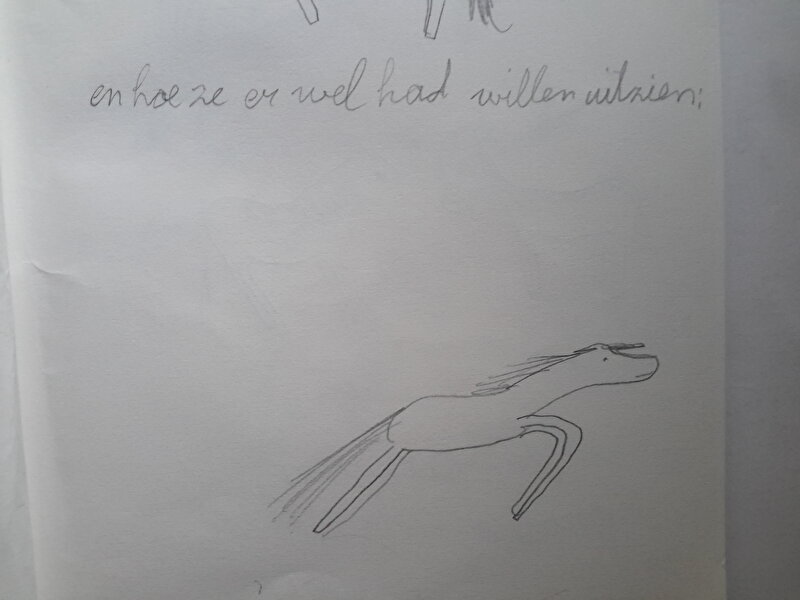 en hoe ze er wel had willen uitzien: